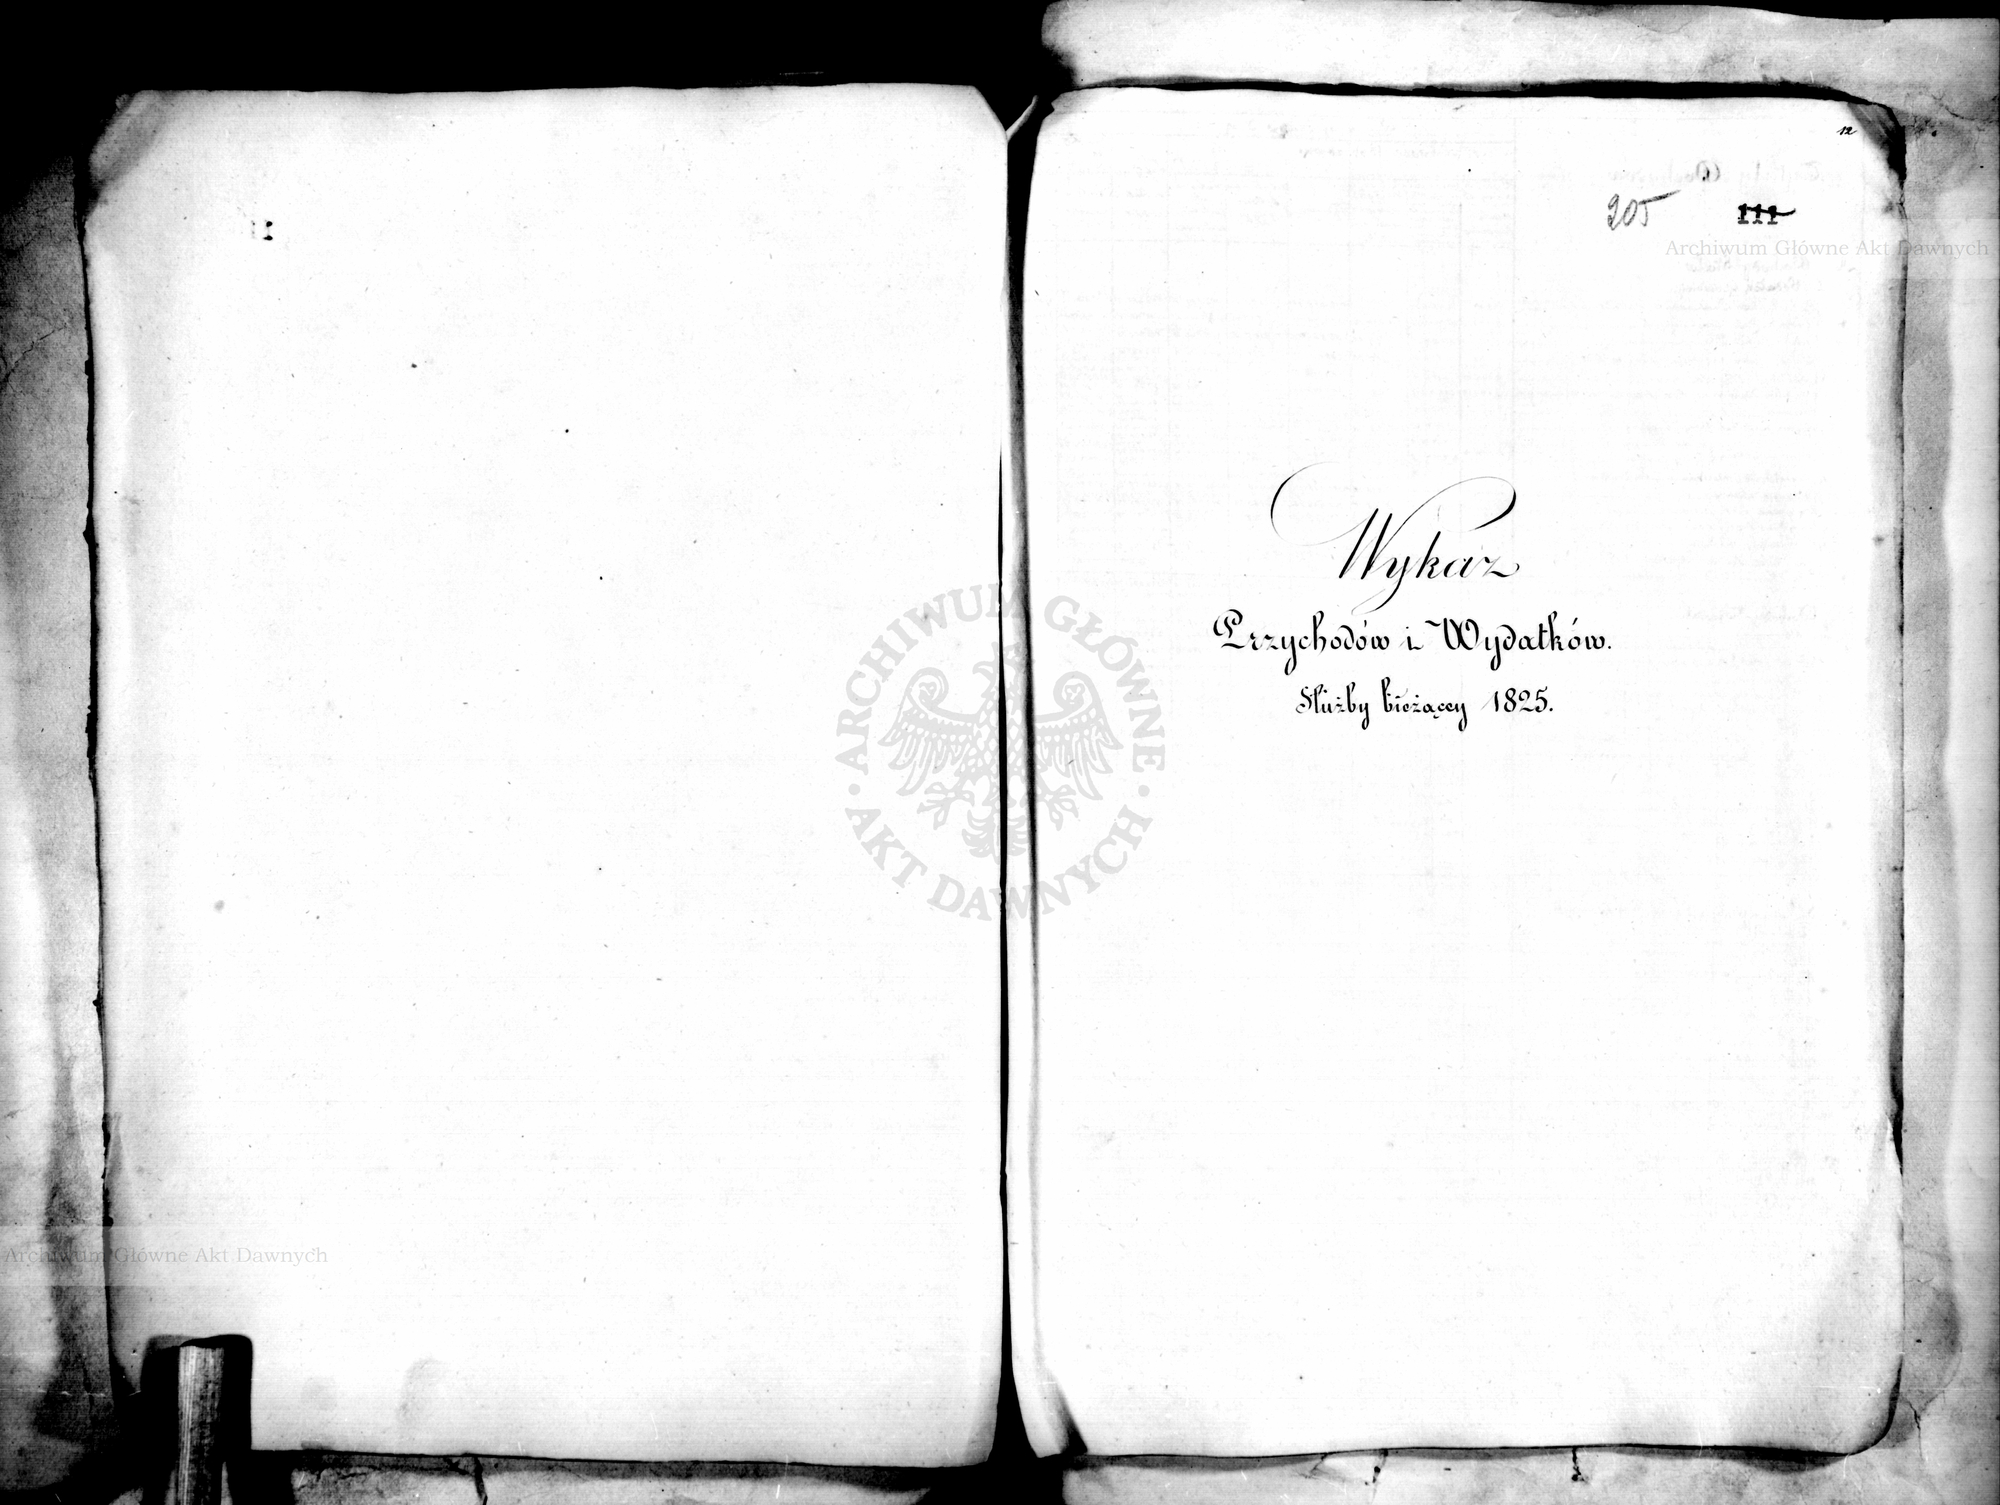 12
205 111
Archiwum Główne Akt Dawnych
Wykaz
Przychodów i Wydatków.
Służby bieżącey 1825.
ARCHIWUM GŁÓWNE
AKT DAWNYCH
Archiwum Główne Akt Dawnych